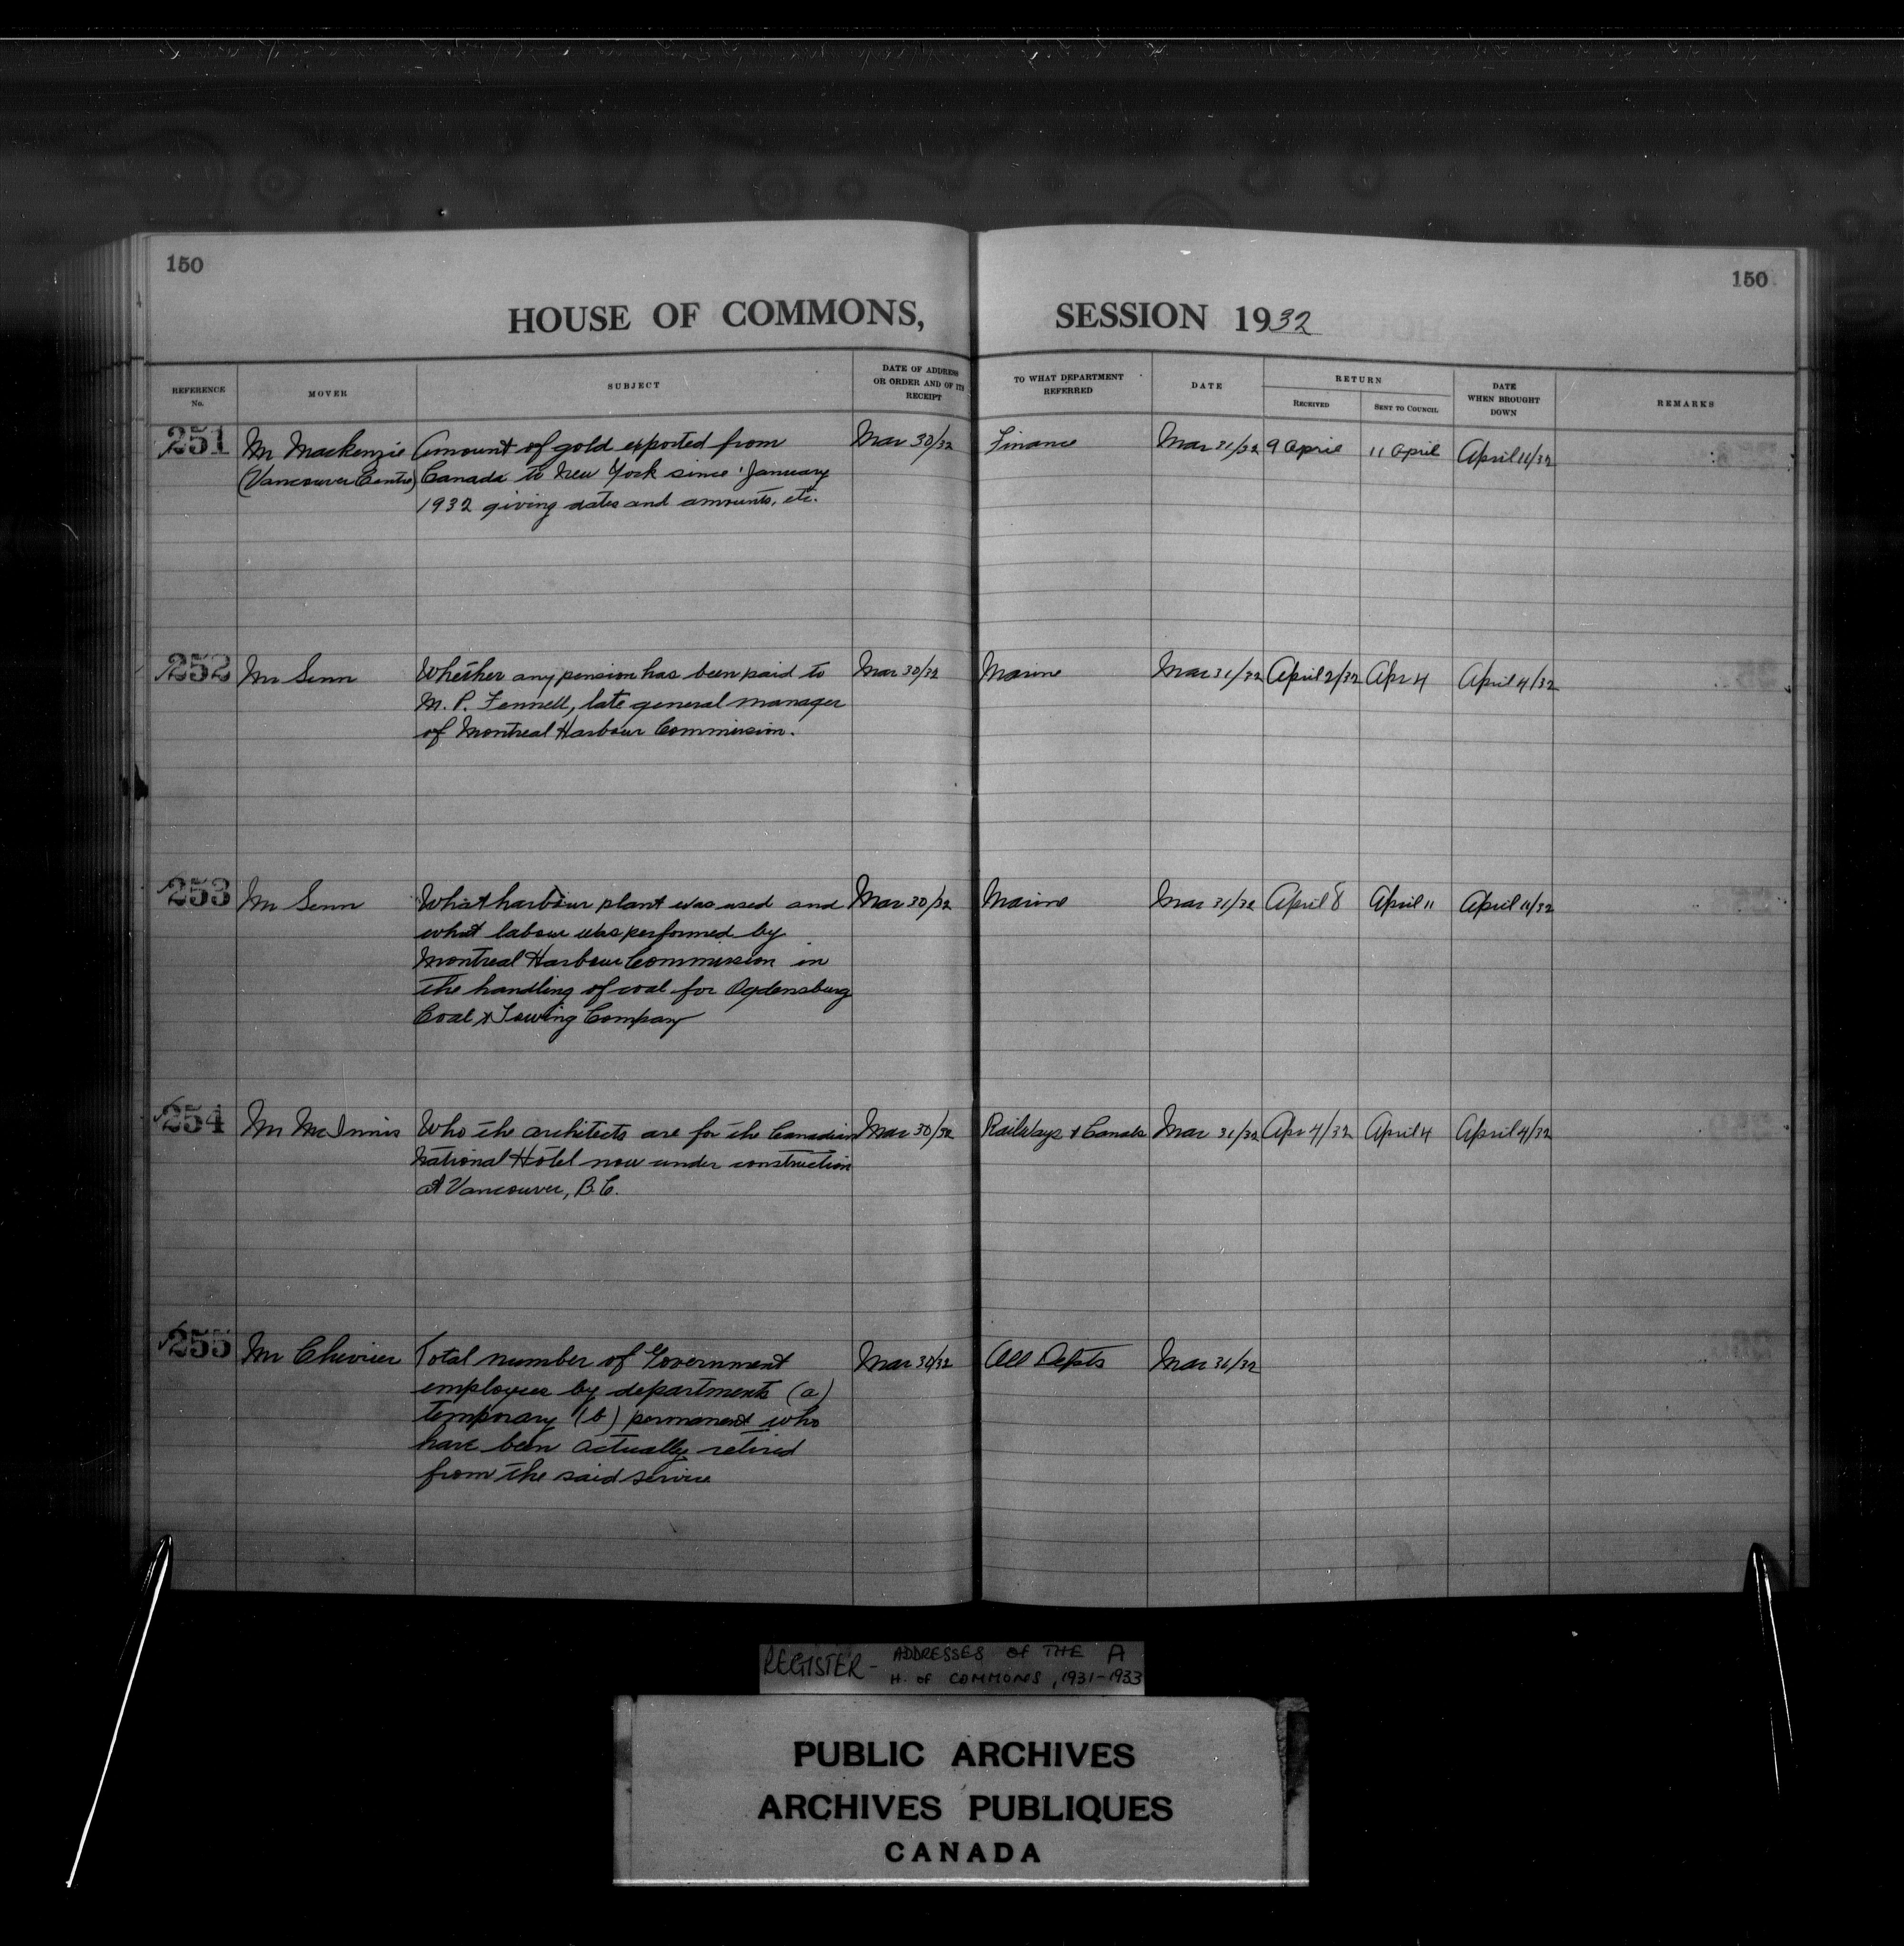 150
150
HOUSE OF COMMONS, SESSION 1932
REFERENCE No. MOVER SUBJECT DATE OF ADDRESS OR ORDER AND OF ITS RECEIPT TO WHAT DEPARTMENT REFERRED DATE RETURN RECEIVED SENT TO COUNCIL DATE WHEN BROUGHT DOWN REMARKS
251 Mr Mackenzie Amount of gold exported from Mar 30/32 Finance Mar 31/32 9 April 11 April April 11/32
(Vancouver Centre) Canada to New York since January
1932 giving dates and amounts, etc.
252 Mr Senn Whether any pension has been paid to Mar 30/32 Marine Mar 31/32 April 2/32 Apr 4 April 4/32
M. P. Fennell, late general manager
of Montreal Harbour Commission.
253 Mr Senn What harbour plant was used and Mar 30/32 Marine Mar 31/32 April 8 April 11 April 11/32
what labour was performed by
Montreal Harbour Commission in
the handling of coal for Ogdensburg
Coal & Towing Company
254 Mr McInnis Who the architects are for the Canadian Mar 30/32 Railways & Canals Mar 31/32 Apr 4/32 April 4 April 4/32
National Hotel now under construction
at Vancouver, B.C.
255 Mr Chevrier Total number of Government Mar 30/32 All Depts Mar 31/32
employees by departments (a)
temporary (b) permanent who
have been actually retired
from the said service
REGISTER - ADDRESSES OF THE A
H. of COMMONS, 1931-1933
PUBLIC ARCHIVES
ARCHIVES PUBLIQUES
CANADA